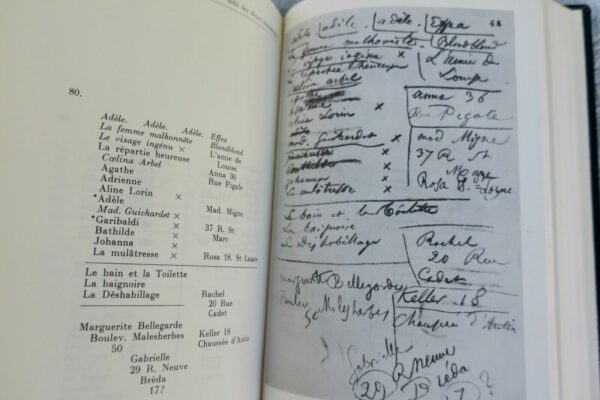 80.
Adèle. Adèle. Adèle. Effea
La femme malhonnête Blondblond
Le visage ingénu × L'amie de
La répartie heureuse Louise
Cœlina Arbel Anna 36
Agathe Rue Pigale
Adrienne
Aline Lorin ×
*Adèle
Mad. Guichardet × Mad. Migne
*Garibaldi × 37 R. St
Bathilde × Marc
Johanna ×
La mulâtresse × Rosa 18. St Lazare
Le bain et la Toilette
La baignoire
La Déshabillage Rachel
20 Rue
Cadet
Marguerite Bellegarde
Boulev. Malesherbes Keller 18
50 Chaussée d'Antin
Gabrielle
29 R. Neuve
Bréda
17?
44
adèle. Effea
La femme malhonnête Blondblond
Le visage ingénu × L'amie de
La répartie heureuse Louise
Cœlina arbel
anna 36
Rue Pigale
aline Lorin ×
mad. Guichardet × mad Migne
37 R St
Johanna ×
La mulâtresse × Rosa 18.
Le bain et la Toilette
La baignoire
Le Déshabillage Rachel
20 Rue
Cadet
marguerite Bellegarde
Boulev Malesherbes Keller 18
50 Chaussée d'Antin
Gabrielle
29 R Neuve
Bréda
17 ?